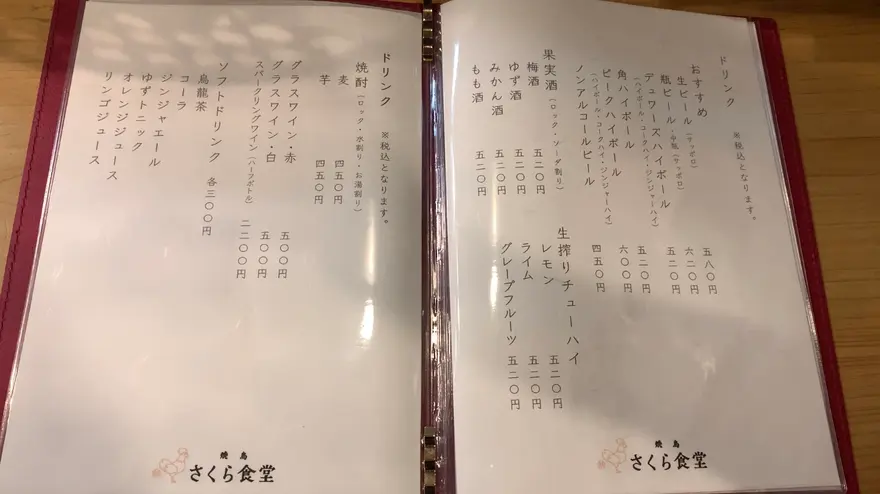 ドリンク ※税込となります。
おすすめ
生ビール（サッポロ） 五八〇円
瓶ビール・中瓶（サッポロ） 六二〇円
デュワーズハイボール 五二〇円
（ハイボール・コークハイ・ジンジャーハイ）
角ハイボール 五二〇円
ピークハイボール 六〇〇円
（ハイボール・コークハイ・ジンジャーハイ）
ノンアルコールビール 四五〇円
果実酒（ロック・ソーダ割り）
梅酒 五二〇円
ゆず酒 五二〇円
みかん酒 五二〇円
もも酒 五二〇円
生搾りチューハイ
レモン 五二〇円
ライム 五二〇円
グレープフルーツ 五二〇円
焼鳥
さくら食堂
ドリンク ※税込となります。
焼酎（ロック・水割り・お湯割り）
麦 四五〇円
芋 四五〇円
グラスワイン・赤 五〇〇円
グラスワイン・白 五〇〇円
スパークリングワイン（ハーフボトル） 二二〇〇円
ソフトドリンク 各三〇〇円
烏龍茶
コーラ
ジンジャエール
ゆずトニック
オレンジジュース
リンゴジュース
焼鳥
さくら食堂